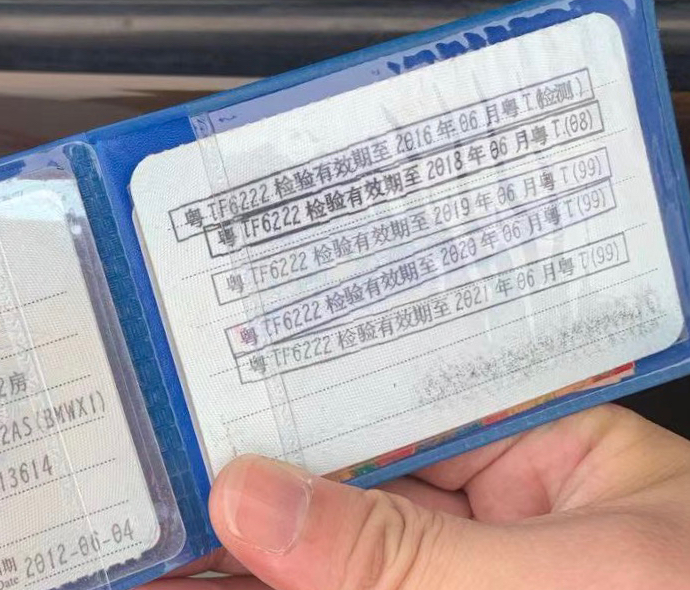 2房
2AS(BMWX1)
13614
期
Date 2012-06-04
粤 TF6222 检验有效期至 2016 年 06 月粤 T(检测)
粤 TF6222 检验有效期至 2018 年 06 月粤 T.(08)
粤 TF6222 检验有效期至 2019 年 06 月粤 T(99)
粤 TF6222 检验有效期至 2020 年 06 月粤 T(99)
粤 TF6222 检验有效期至 2021 年 06 月粤 T(99)